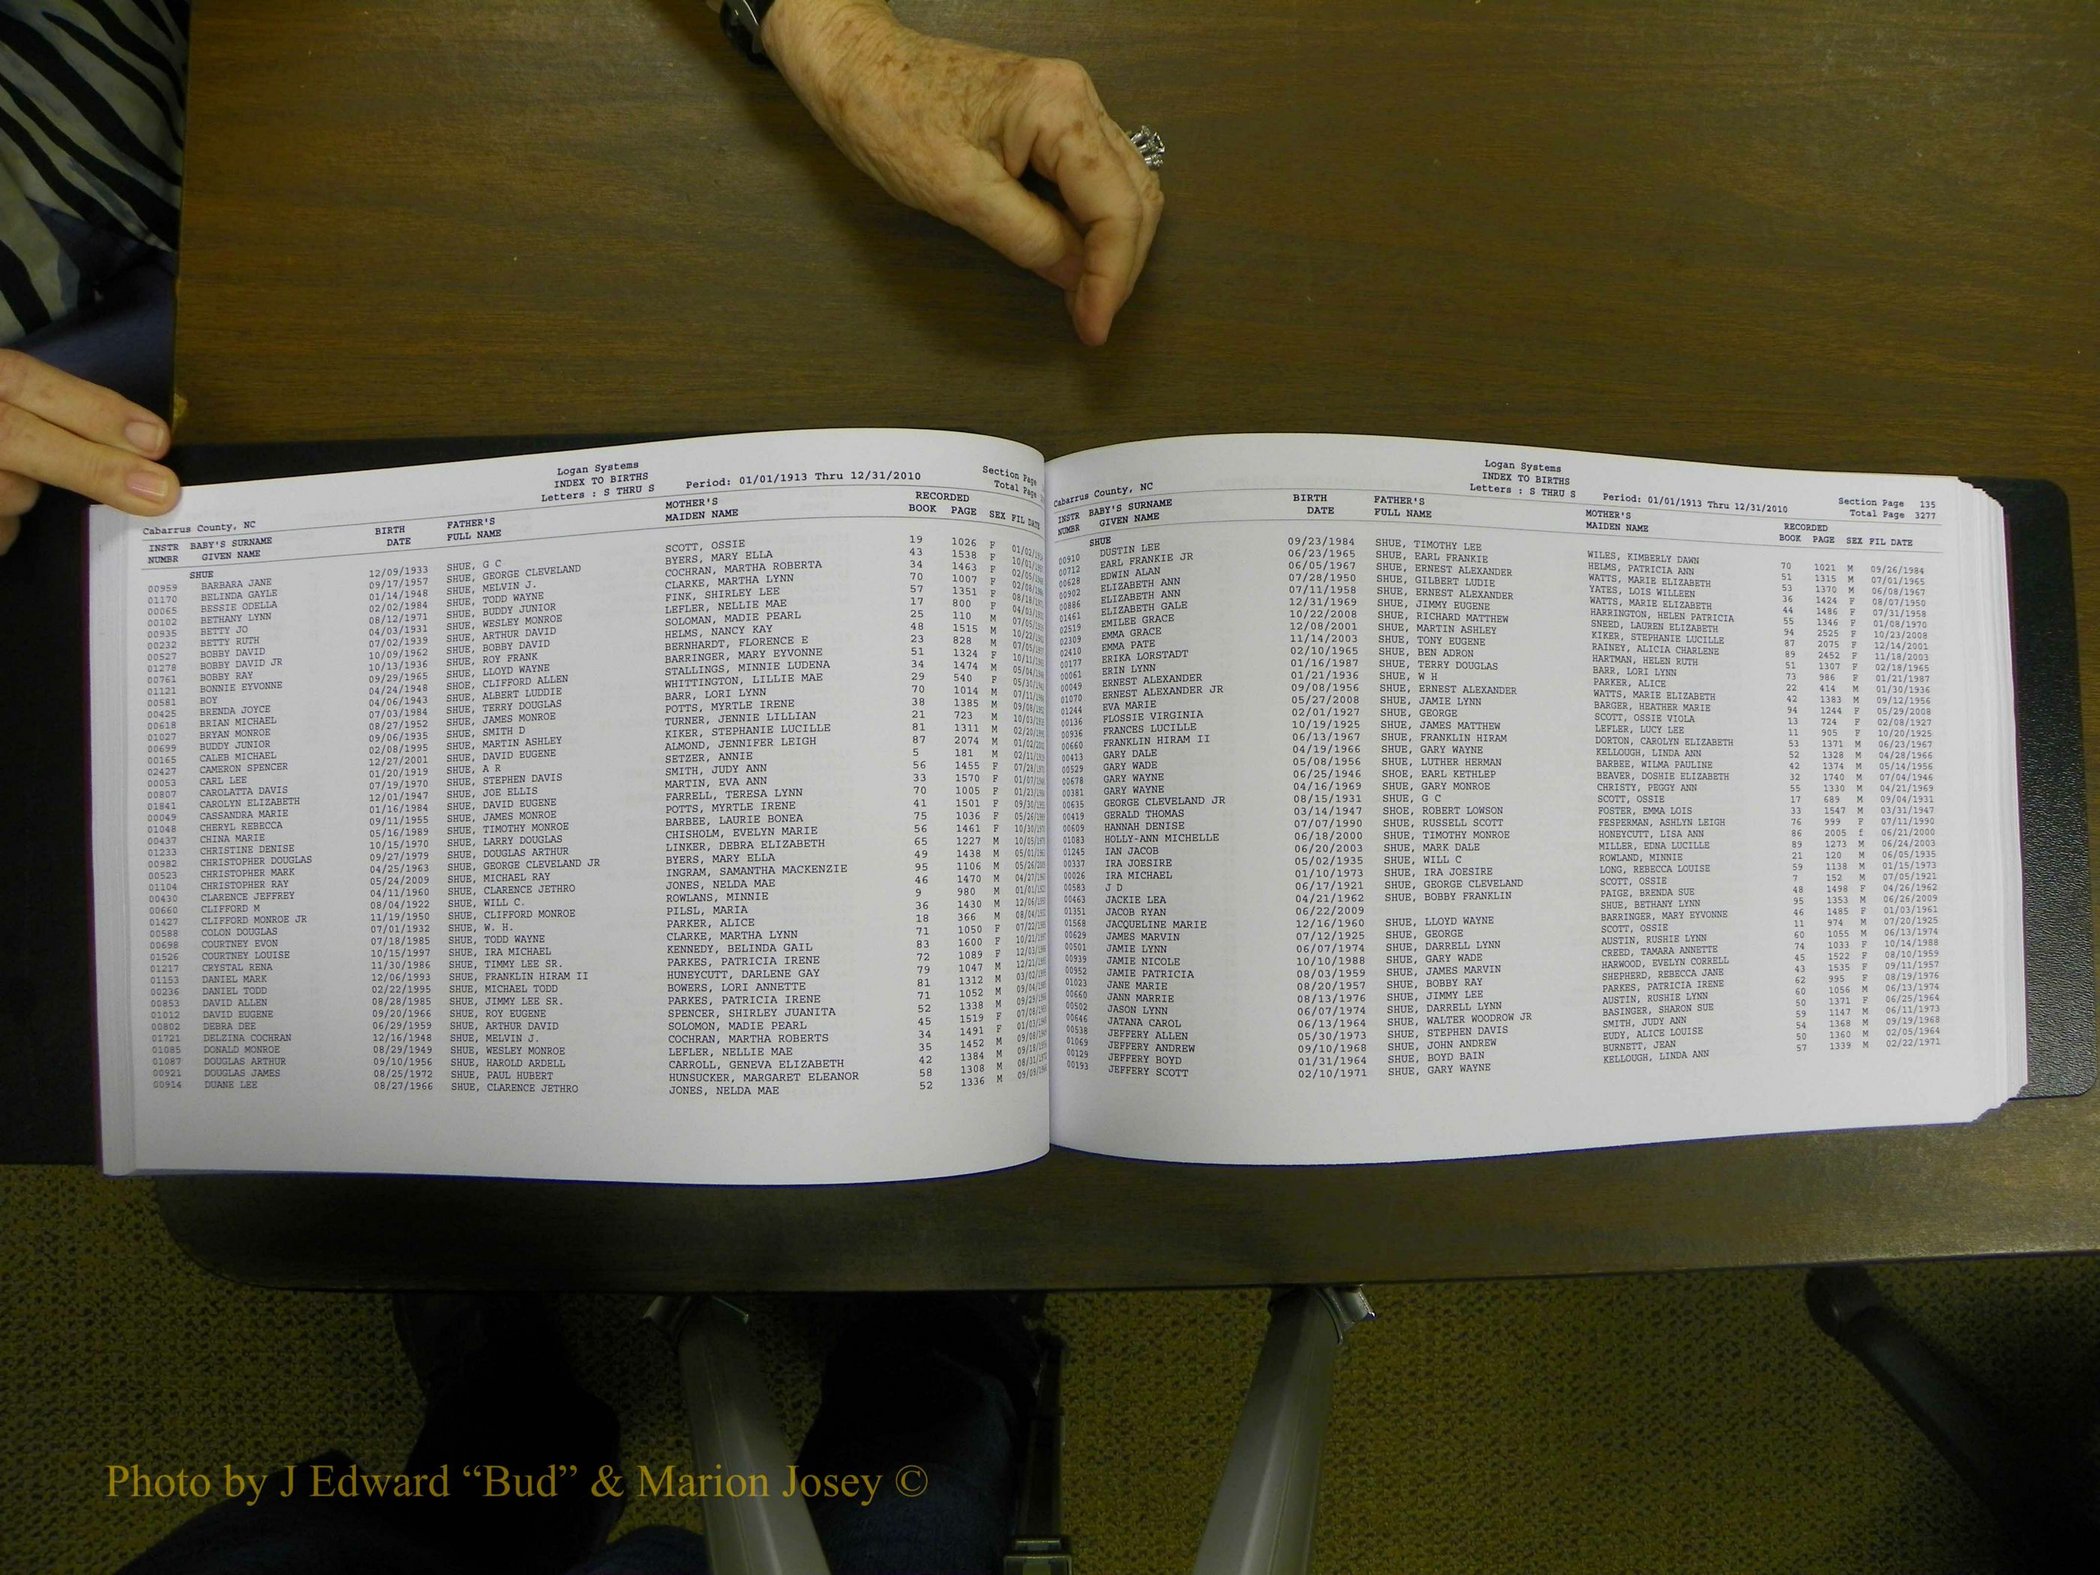 Logan Systems
INDEX TO BIRTHS
Letters : S THRU S Period: 01/01/1913 Thru 12/31/2010
Section Page
Total Page
Cabarrus County, NC
INSTR BABY'S SURNAME BIRTH FATHER'S MOTHER'S RECORDED
NUMBR GIVEN NAME DATE FULL NAME MAIDEN NAME BOOK PAGE SEX FIL DATE
SHUE
00959 BARBARA JANE 12/09/1933 SHUE, G C SCOTT, OSSIE 19 1026 F
01170 BELINDA GAYLE 09/17/1957 SHUE, GEORGE CLEVELAND BYERS, MARY ELLA 43 1538 F
00065 BESSIE ODELLA 01/14/1948 SHUE, MELVIN J. COCHRAN, MARTHA ROBERTA 34 1463 F
00102 BETHANY LYNN 02/02/1984 SHUE, TODD WAYNE CLARKE, MARTHA LYNN 70 1007 F
00935 BETTY JO 08/12/1971 SHUE, BUDDY JUNIOR FINK, SHIRLEY LEE 57 1351 F
00232 BETTY RUTH 04/03/1931 SHUE, WESLEY MONROE LEFLER, NELLIE MAE 17 800 F
00527 BOBBY DAVID 07/02/1939 SHUE, ARTHUR DAVID SOLOMAN, MADIE PEARL 25 110 M
01278 BOBBY DAVID JR 10/09/1962 SHUE, BOBBY DAVID HELMS, NANCY KAY 48 1515 M
00761 BOBBY RAY 10/13/1936 SHUE, ROY FRANK BERNHARDT, FLORENCE E 23 828 M
01121 BONNIE EYVONNE 09/29/1965 SHUE, LLOYD WAYNE BARRINGER, MARY EYVONNE 51 1324 F
00581 BOY 04/24/1948 SHOE, CLIFFORD ALLEN STALLINGS, MINNIE LUDENA 34 1474 M
00425 BRENDA JOYCE 04/06/1943 SHUE, ALBERT LUDDIE WHITTINGTON, LILLIE MAE 29 540 F
00618 BRIAN MICHAEL 07/03/1984 SHUE, TERRY DOUGLAS BARR, LORI LYNN 70 1014 M
01027 BRYAN MONROE 08/27/1952 SHUE, JAMES MONROE POTTS, MYRTLE IRENE 38 1385 M
00699 BUDDY JUNIOR 09/06/1935 SHUE, SMITH D TURNER, JENNIE LILLIAN 21 723 M
00165 CALEB MICHAEL 02/08/1995 SHUE, MARTIN ASHLEY KIKER, STEPHANIE LUCILLE 81 1311 M
02427 CAMERON SPENCER 12/27/2001 SHUE, DAVID EUGENE ALMOND, JENNIFER LEIGH 87 2074 M
00053 CARL LEE 01/20/1919 SHUE, A R SETZER, ANNIE 5 181 M
00807 CAROLATTA DAVIS 07/19/1970 SHUE, STEPHEN DAVIS SMITH, JUDY ANN 56 1455 F
01841 CAROLYN ELIZABETH 12/01/1947 SHUE, JOE ELLIS MARTIN, EVA ANN 33 1570 F
00049 CASSANDRA MARIE 01/16/1984 SHUE, DAVID EUGENE FARRELL, TERESA LYNN 70 1005 F
01048 CHERYL REBECCA 09/11/1955 SHUE, JAMES MONROE POTTS, MYRTLE IRENE 41 1501 F
00437 CHINA MARIE 05/16/1989 SHUE, TIMOTHY MONROE BARBEE, LAURIE BONEA 75 1036 F
01233 CHRISTINE DENISE 10/15/1970 SHUE, LARRY DOUGLAS CHISHOLM, EVELYN MARIE 56 1461 F
00982 CHRISTOPHER DOUGLAS 09/27/1979 SHUE, DOUGLAS ARTHUR LINKER, DEBRA ELIZABETH 65 1227 M
00523 CHRISTOPHER MARK 04/25/1963 SHUE, GEORGE CLEVELAND JR BYERS, MARY ELLA 49 1438 M
01104 CHRISTOPHER RAY 05/24/2009 SHUE, MICHAEL RAY INGRAM, SAMANTHA MACKENZIE 95 1106 M
00430 CLARENCE JEFFREY 04/11/1960 SHUE, CLARENCE JETHRO JONES, NELDA MAE 46 1470 M
00660 CLIFFORD M 08/04/1922 SHUE, WILL C. ROWLANS, MINNIE 9 980 M
01427 CLIFFORD MONROE JR 11/19/1950 SHUE, CLIFFORD MONROE PILSL, MARIA 36 1430 M
00588 COLON DOUGLAS 07/01/1932 SHUE, W. H. PARKER, ALICE 18 366 M
00698 COURTNEY EVON 07/18/1985 SHUE, TODD WAYNE CLARKE, MARTHA LYNN 71 1050 F
01526 COURTNEY LOUISE 10/15/1997 SHUE, IRA MICHAEL KENNEDY, BELINDA GAIL 83 1600 F
01217 CRYSTAL RENA 11/30/1986 SHUE, TIMMY LEE SR. PARKES, PATRICIA IRENE 72 1089 F
01153 DANIEL MARK 12/06/1993 SHUE, FRANKLIN HIRAM II HUNEYCUTT, DARLENE GAY 79 1047 M
00236 DANIEL TODD 02/22/1995 SHUE, MICHAEL TODD BOWERS, LORI ANNETTE 81 1312 M
00853 DAVID ALLEN 08/28/1985 SHUE, JIMMY LEE SR. PARKES, PATRICIA IRENE 71 1052 M
01012 DAVID EUGENE 09/20/1966 SHUE, ROY EUGENE SPENCER, SHIRLEY JUANITA 52 1338 M
00802 DEBRA DEE 06/29/1959 SHUE, ARTHUR DAVID SOLOMON, MADIE PEARL 45 1519 F
01721 DELZINA COCHRAN 12/16/1948 SHUE, MELVIN J. COCHRAN, MARTHA ROBERTS 34 1491 F
01085 DONALD MONROE 08/29/1949 SHUE, WESLEY MONROE LEFLER, NELLIE MAE 35 1452 M
01087 DOUGLAS ARTHUR 09/10/1956 SHUE, HAROLD ARDELL CARROLL, GENEVA ELIZABETH 42 1384 M
00921 DOUGLAS JAMES 08/25/1972 SHUE, PAUL HUBERT HUNSUCKER, MARGARET ELEANOR 58 1308 M
00914 DUANE LEE 08/27/1966 SHUE, CLARENCE JETHRO JONES, NELDA MAE 52 1336 M
Logan Systems
INDEX TO BIRTHS
Letters : S THRU S Period: 01/01/1913 Thru 12/31/2010
Section Page 135
Total Page 3277
Cabarrus County, NC
INSTR BABY'S SURNAME BIRTH FATHER'S MOTHER'S RECORDED
NUMBR GIVEN NAME DATE FULL NAME MAIDEN NAME BOOK PAGE SEX FIL DATE
SHUE
00910 DUSTIN LEE 09/23/1984 SHUE, TIMOTHY LEE WILES, KIMBERLY DAWN 70 1021 M 09/26/1984
00712 EARL FRANKIE JR 06/23/1965 SHUE, EARL FRANKIE HELMS, PATRICIA ANN 51 1315 M 07/01/1965
00628 EDWIN ALAN 06/05/1967 SHUE, ERNEST ALEXANDER WATTS, MARIE ELIZABETH 53 1370 M 06/08/1967
00902 ELIZABETH ANN 07/28/1950 SHUE, GILBERT LUDIE YATES, LOIS WILLEEN 36 1424 F 08/07/1950
00886 ELIZABETH ANN 07/11/1958 SHUE, ERNEST ALEXANDER WATTS, MARIE ELIZABETH 44 1486 F 07/31/1958
01461 ELIZABETH GALE 12/31/1969 SHUE, JIMMY EUGENE HARRINGTON, HELEN PATRICIA 55 1346 F 01/08/1970
02519 EMILEE GRACE 10/22/2008 SHUE, RICHARD MATTHEW SNEED, LAUREN ELIZABETH 94 2525 F 10/23/2008
02309 EMMA GRACE 12/08/2001 SHUE, MARTIN ASHLEY KIKER, STEPHANIE LUCILLE 87 2075 F 12/14/2001
02410 EMMA PATE 11/14/2003 SHUE, TONY EUGENE RAINEY, ALICIA CHARLENE 89 2452 F 11/18/2003
00177 ERIKA LORSTADT 02/10/1965 SHUE, BEN ADRON HARTMAN, HELEN RUTH 51 1307 F 02/18/1965
00061 ERIN LYNN 01/16/1987 SHUE, TERRY DOUGLAS BARR, LORI LYNN 73 986 F 01/21/1987
00049 ERNEST ALEXANDER 01/21/1936 SHUE, W H PARKER, ALICE 22 414 M 01/30/1936
01070 ERNEST ALEXANDER JR 09/08/1956 SHUE, ERNEST ALEXANDER WATTS, MARIE ELIZABETH 42 1383 M 09/12/1956
01244 EVA MARIE 05/27/2008 SHUE, JAMIE LYNN BARGER, HEATHER MARIE 94 1244 F 05/29/2008
00136 FLOSSIE VIRGINIA 02/01/1927 SHUE, GEORGE SCOTT, OSSIE VIOLA 13 724 F 02/08/1927
00936 FRANCES LUCILLE 10/19/1925 SHUE, JAMES MATTHEW LEFLER, LUCY LEE 11 905 F 10/20/1925
00660 FRANKLIN HIRAM II 06/13/1967 SHUE, FRANKLIN HIRAM DORTON, CAROLYN ELIZABETH 53 1371 M 06/23/1967
00413 GARY DALE 04/19/1966 SHUE, GARY WAYNE KELLOUGH, LINDA ANN 52 1328 M 04/28/1966
00529 GARY WADE 05/08/1956 SHUE, LUTHER HERMAN BARBEE, WILMA PAULINE 42 1374 M 05/14/1956
00678 GARY WAYNE 06/25/1946 SHOE, EARL KETHLEP BEAVER, DOSHIE ELIZABETH 32 1740 M 07/04/1946
00381 GARY WAYNE 04/16/1969 SHUE, GARY MONROE CHRISTY, PEGGY ANN 55 1330 M 04/21/1969
00635 GEORGE CLEVELAND JR 08/15/1931 SHUE, G C SCOTT, OSSIE 17 689 M 09/04/1931
00419 GERALD THOMAS 03/14/1947 SHOE, ROBERT LOWSON FOSTER, EMMA LOIS 33 1547 M 03/31/1947
00609 HANNAH DENISE 07/07/1990 SHUE, RUSSELL SCOTT FESPERMAN, ASHLYN LEIGH 76 999 F 07/11/1990
01083 HOLLY-ANN MICHELLE 06/18/2000 SHUE, TIMOTHY MONROE HONEYCUTT, LISA ANN 86 2005 f 06/21/2000
01245 IAN JACOB 06/20/2003 SHUE, MARK DALE MILLER, EDNA LUCILLE 89 1273 M 06/24/2003
00337 IRA JOESIRE 05/02/1935 SHUE, WILL C ROWLAND, MINNIE 21 120 M 06/05/1935
00026 IRA MICHAEL 01/10/1973 SHUE, IRA JOESIRE LONG, REBECCA LOUISE 59 1138 M 01/15/1973
00583 J D 06/17/1921 SHUE, GEORGE CLEVELAND SCOTT, OSSIE 7 152 M 07/05/1921
00463 JACKIE LEA 04/21/1962 SHUE, BOBBY FRANKLIN PAIGE, BRENDA SUE 48 1498 F 04/26/1962
01351 JACOB RYAN 06/22/2009 SHUE, BETHANY LYNN 95 1353 M 06/26/2009
01568 JACQUELINE MARIE 12/16/1960 SHUE, LLOYD WAYNE BARRINGER, MARY EYVONNE 46 1485 F 01/03/1961
00629 JAMES MARVIN 07/12/1925 SHUE, GEORGE SCOTT, OSSIE 11 974 M 07/20/1925
00501 JAMIE LYNN 06/07/1974 SHUE, DARRELL LYNN AUSTIN, RUSHIE LYNN 60 1055 M 06/13/1974
00939 JAMIE NICOLE 10/10/1988 SHUE, GARY WADE CREED, TAMARA ANNETTE 74 1033 F 10/14/1988
00952 JAMIE PATRICIA 08/03/1959 SHUE, JAMES MARVIN HARWOOD, EVELYN CORRELL 45 1522 F 08/10/1959
01023 JANE MARIE 08/20/1957 SHUE, BOBBY RAY SHEPHERD, REBECCA JANE 43 1535 F 09/11/1957
00660 JANN MARRIE 08/13/1976 SHUE, JIMMY LEE PARKES, PATRICIA IRENE 62 995 F 08/19/1976
00502 JASON LYNN 06/07/1974 SHUE, DARRELL LYNN AUSTIN, RUSHIE LYNN 60 1056 M 06/13/1974
00646 JATANA CAROL 06/13/1964 SHUE, WALTER WOODROW JR BASINGER, SHARON SUE 50 1371 F 06/25/1964
00538 JEFFERY ALLEN 05/30/1973 SHUE, STEPHEN DAVIS SMITH, JUDY ANN 59 1147 M 06/11/1973
01069 JEFFERY ANDREW 09/10/1968 SHUE, JOHN ANDREW EUDY, ALICE LOUISE 54 1368 M 09/19/1968
00129 JEFFERY BOYD 01/31/1964 SHUE, BOYD BAIN BURNETT, JEAN 50 1360 M 02/05/1964
00193 JEFFERY SCOTT 02/10/1971 SHUE, GARY WAYNE KELLOUGH, LINDA ANN 57 1339 M 02/22/1971
Photo by J Edward “Bud” & Marion Josey ©